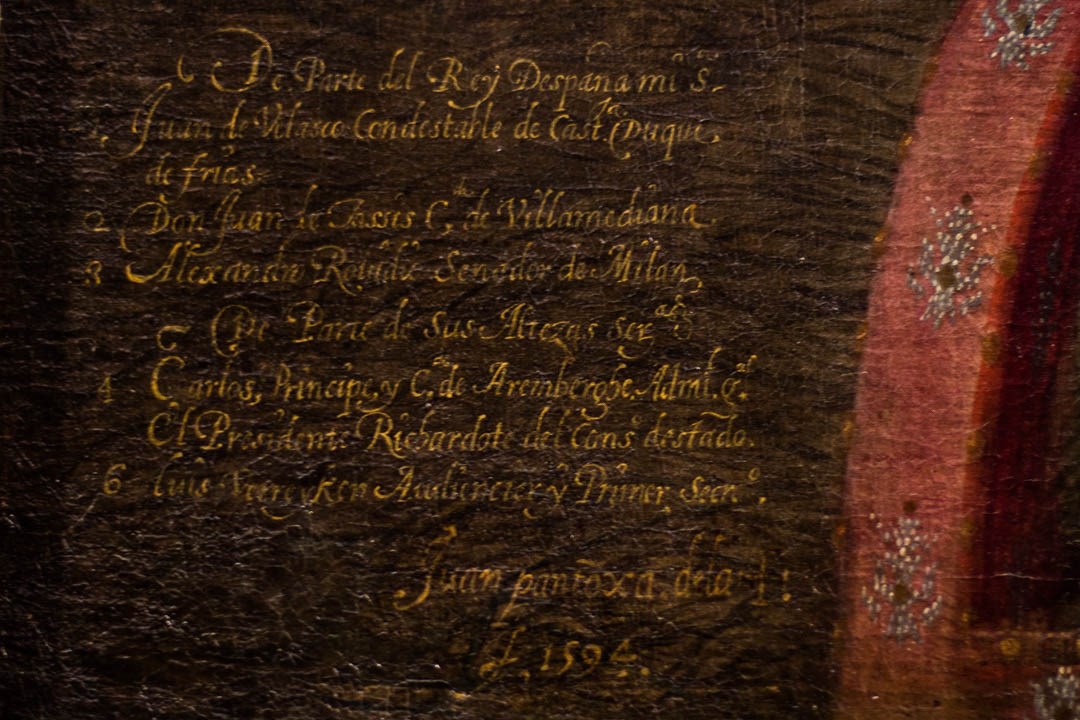 De Parte del Rey Despaña mi S.r
1. Juan de Velasco Condestable de Cast.la Duque,
de frias.
2 Don Juan de Tassis C.de de Villamediana.
3 Alexandro Rouidio Senador de Milan,
De Parte de Sus Altezas Ser.as
4 Carlos, Principe, y C.de de Aremberghe, Admi.
El Presidente Richardote del Cons.o destado.
6 Luis Verreyken Audiencier y Primer Secre.o,
Juan pantoxa. de la
F. 1594.